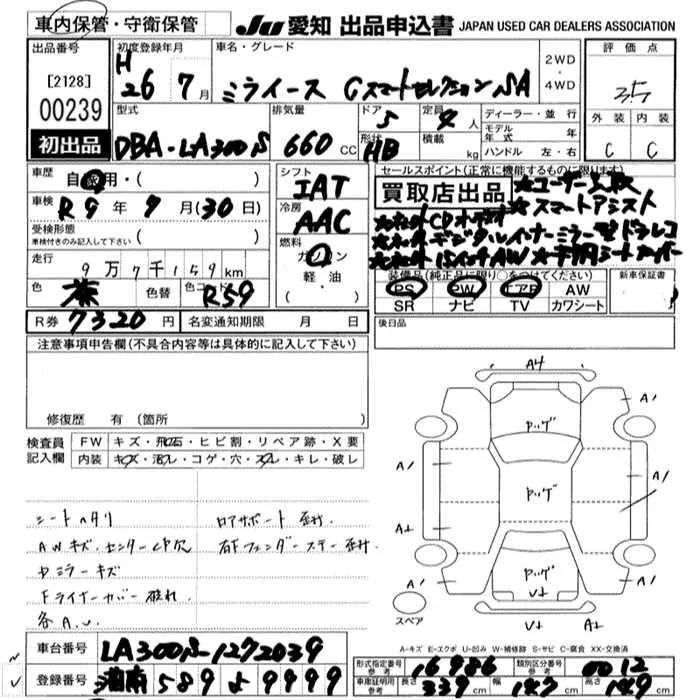 車内保管・守衛保管 JU 愛知 出品申込書 JAPAN USED CAR DEALERS ASSOCIATION
出品番号
[2128]
00239
初出品
初度登録年月
H
26 7月
車名・グレード
ミライース Gスマートセレクション SA
2WD
・
4WD
評価点
3.5
外装 内装
C C
型式
DBA-LA300S
排気量
660 cc
ドア
5
形状
HB
定員
4人
積載
kg
ディーラー・並行
モデル年式 年
ハンドル 左・右
車歴
自家用・( )
車検
R9年7月(30日)
受検形態
車検付きのみ記入して下さい ( )
走行
9万7千159km
色
茶
色替
色コード
R59
シフト
IAT
冷房
AAC
燃料
ガソリン
軽油
セールスポイント(正常に機能するものに限ります)
買取店出品 ★ユーザー買取
★スマートアシスト
CDオーディオ
デジタルインナーミラー型ドラレコ
15インチAW
装備品(純正品に限り○をつけてください)
PS PW エアB AW
SR ナビ TV カワシート
新車保証書
後日品
R券 7320円
名変通知期限 月 日
注意事項申告欄(不具合内容等は具体的に記入して下さい)
修復歴 有 (箇所
検査員記入欄
FW キズ・飛石・ヒビ割・リペア跡・X要
内装 キズ・汚レ・コゲ・穴・スレ・キレ・破レ
シートヘタリ
AWキズ.センターCP欠
ドミラーキズ
Fライナーカバー破れ
各A.U.
ロアサポート歪ミ
右Fフェンダーステー歪ミ
A4
A1
ヤッゲ
A1
A1
ヤッゲ
A1
A1
ヤッゲ
A1
U1
U1 A1
スペア
A-キズ E-エクボ U-凹み W-補修跡 S-サビ C-腐食 XX-交換済
車台番号
LA300S-1272039
登録番号
湘南 589 よ 9999
形式指定番号
参考
16986
類別区分番号
参考
0012
車庫証明用
参考
長さ
339cm
幅
147cm
高さ
149cm